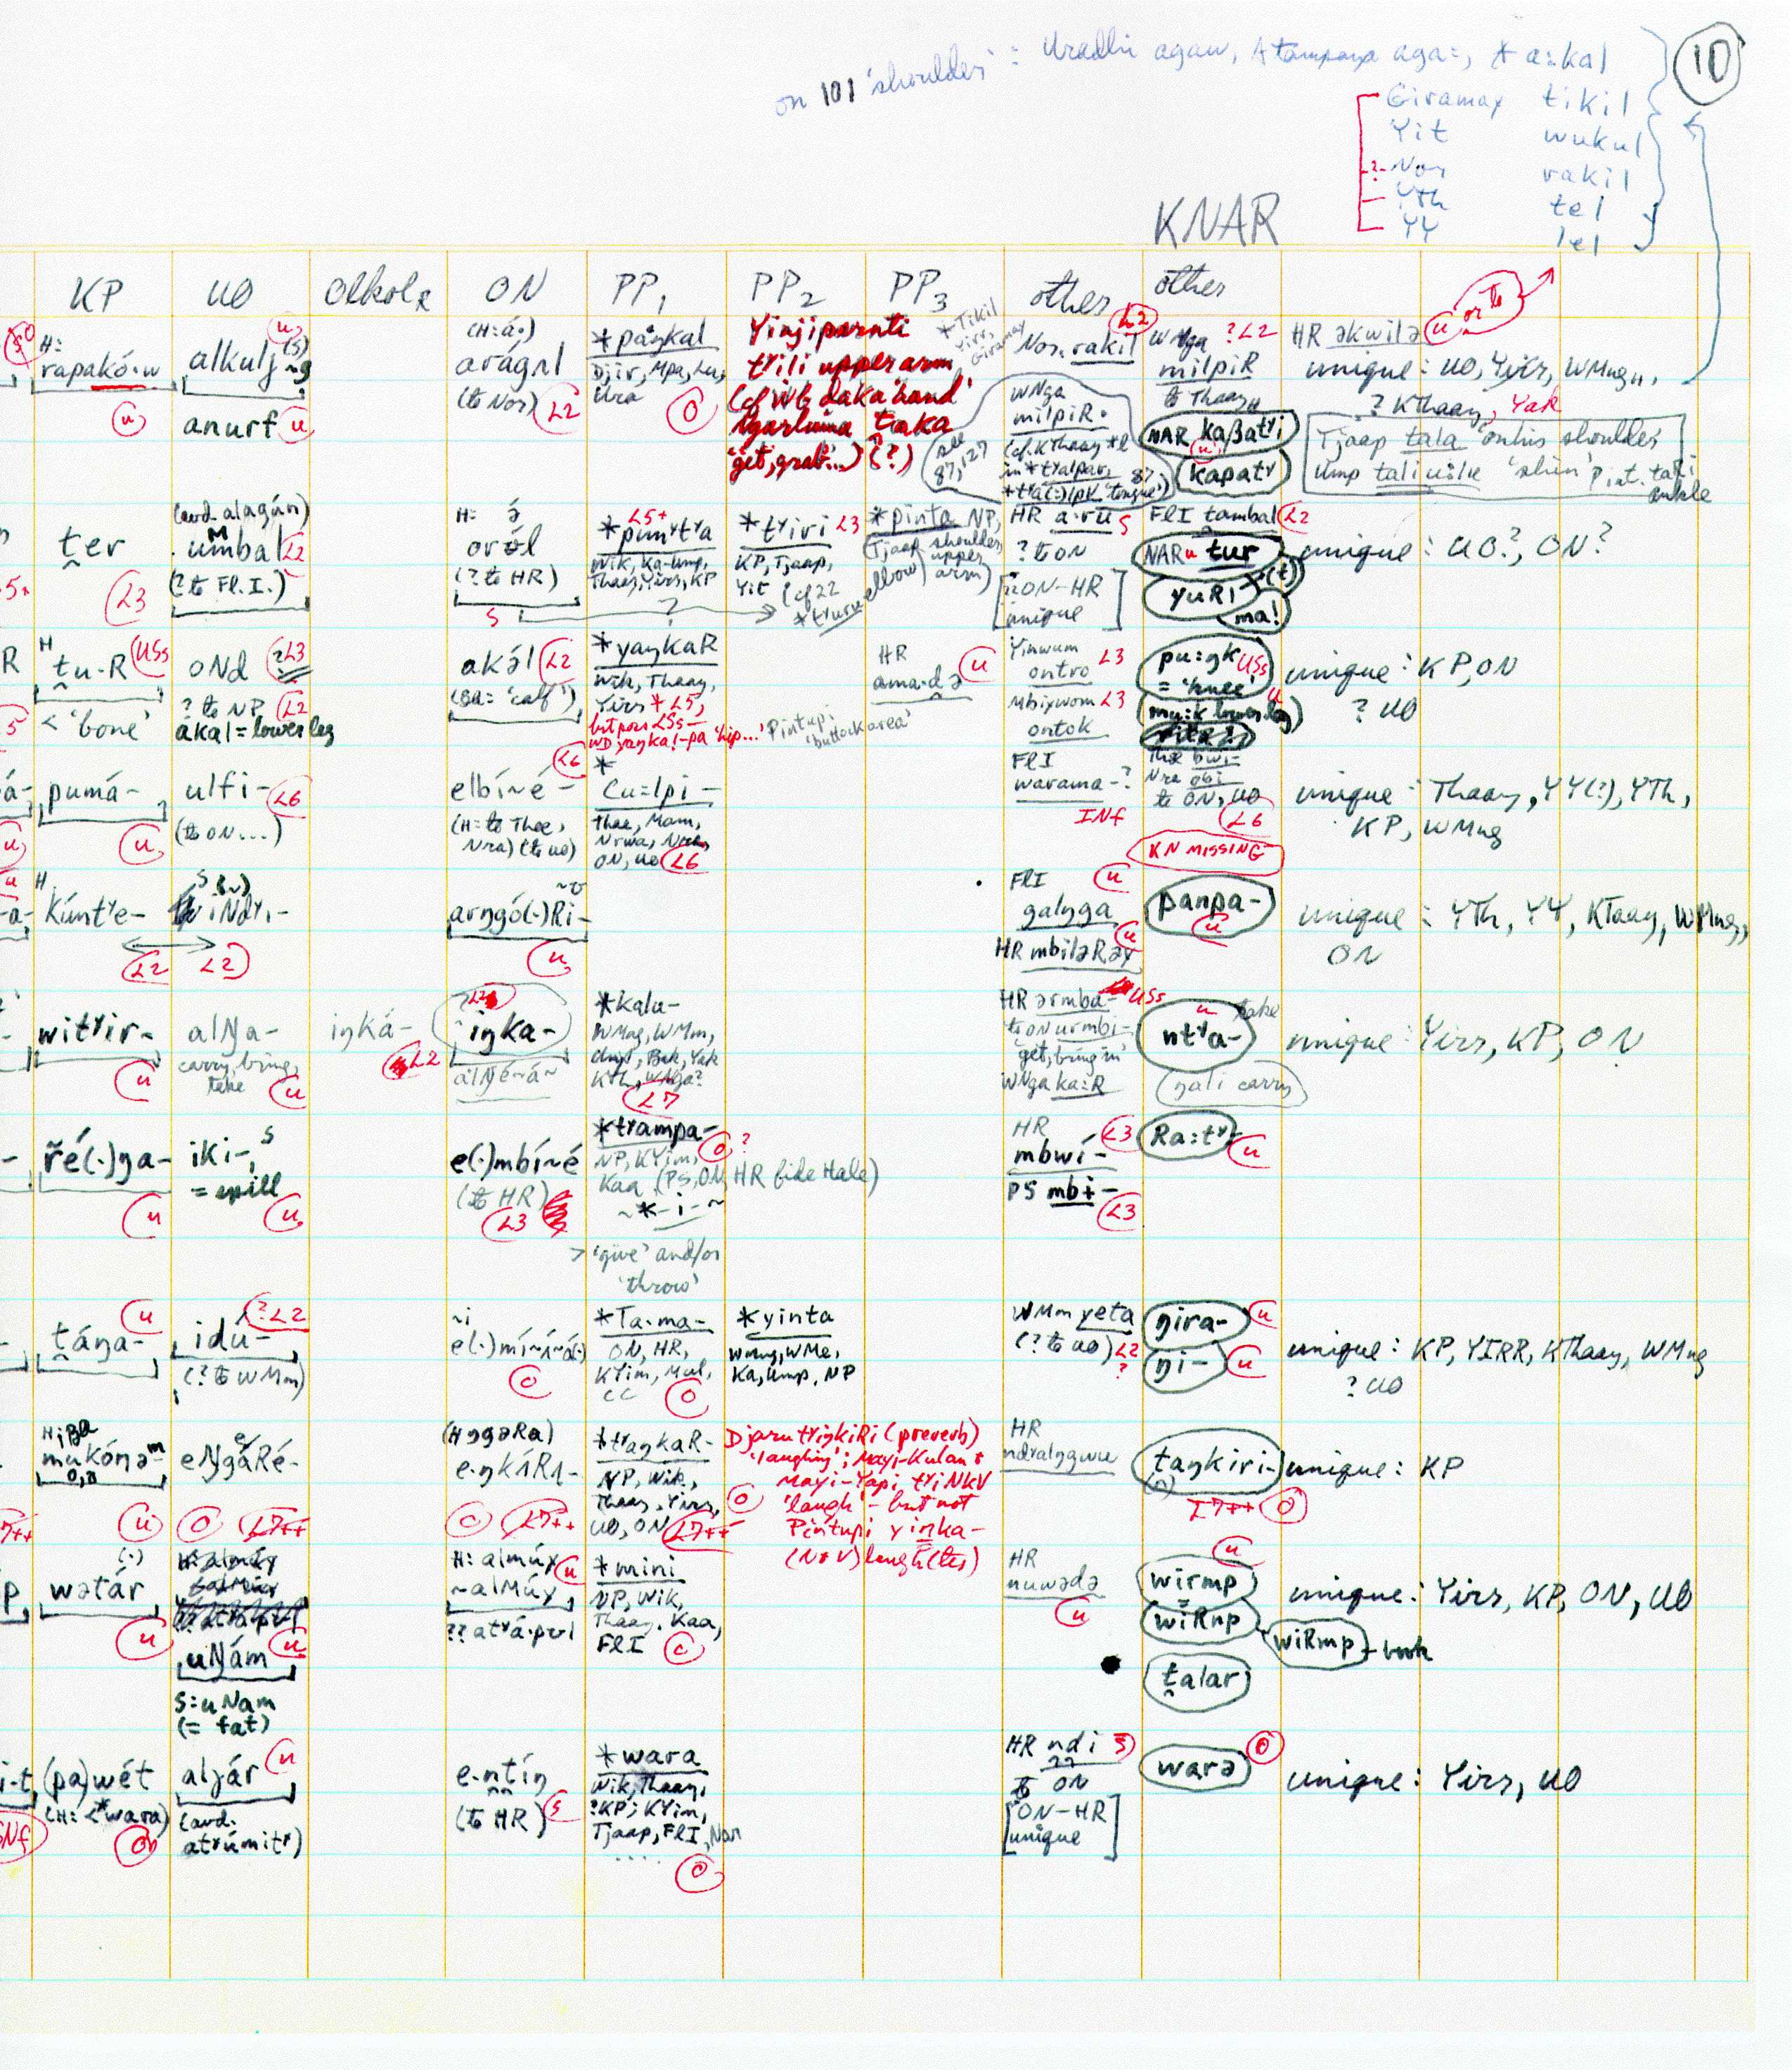 on 101 'shoulder' : Uradhi agaw, Atampaya aga:, * a:kal
10
Giramay tikil
Yit wukul
? Nor rakil
YTh tel
YY lel
KNAR
KP UO Olkol ON PP1 PP2 PP3 other other
H:
rapakó·w
u
alkulŋ
(s)
anurf u
(H:á·)
arágnl
(to Nor) L2
*paŋkal
Djir, Mpa, Lu,
Ura
O
Yinjiparnti
tʸili upperarm
(cf Wb daka 'hand'
Ngarluma taka
'get, grab...') (?)
*Tikil
Yirs,
Giramay
L2
Nor. rakil
WNga
milpiR·
(cf. KThaay *l
in *tʸalpar,
*tʸa(:)lpV 'tongue')
see
87, 127
WNga ? L2
milpiR
to Thaay
NAR kaβatʸi
u
kapatʸ
HR əkwilə u or Th
unique : UO, Yirs, WMng,
? KThaay, Yak
Tjaap tala 'on his shoulder'
Ump 'shin' Pint. tari
ankle
ter
L3
(avd. alagán)
umbal L2
(? to Fl.I.)
H: ə
oról
(? to HR)
S
L5+
*punʸtʸa
Wik, Ka-Ump,
Thaay, Yirs, KP
?
*tʸiri L3
KP, Tjaap,
Yit (cf 22
*tʸuru
*pinta NP,
(Tjaap shoulder,
upper
arm)
elbow)
HR a·ru S
? to ON
[ON-HR
unique]
FlI tambal L2
NAR u tur
yuRi (t)
ma!
unique : UO?, ON?
H
tu·R USs
< 'bone'
oNd ?L3
? to NP L2
akal = lower leg
akál L2
(Oa: 'calf')
*yaŋkaR
Wik, Thaay,
Yirs * L5,
but poss L5s—
WD yangka!-pa 'hip...'
Pintupi
'buttock area'
HR
ama·də u
Yinwum L3
ontro
Mbiywom L3
ontok
pu:ŋk USs
= 'knee'
mu:k lower leg
rita ?
unique : KP, ON
? UO
pumá-
u
ulfi- L6
(to ON...)
L6
elbí~é-
(H: to Thee,
Nra) (to UO)
*
Cu=lpi-
Thee, Mam,
Nrwa, Nra,
ON, UO L6
FlI
warama-?
INf
The bwi-
Nra obi-
to ON, UO
L6
KN MISSING
unique : Thaay, YY(?), YTh,
KP, WMng
H
kúntʸe-
L2 L2
iNdʸi-
arŋgó(·)Ri-
u
FlI u
galŋga
HR mbiləRəy u
panpa-
u
unique : YTh, YY, KThaay, WMng,
ON
witʸir-
u
alŊa-
carry, bring,
take
u
iŋká-
L2
iŋka-
alŊé~á~
*kalu-
WMng, WMm,
Umpt, Bak, Yak
KTh, WNga?
L7
HR ərmba- USs
to ON urmbi-
'get, bring in'
WNga ka:R
ntʸa- take
u
ŋali carry
unique : Yirs, KP, ON
řé(·)ŋa-
u
iki-, S
= spill
u
e(·)mbí~é
(to HR)
L3
*tʸampa- O ?
NP, KYim,
Kaa (PS, ON, HR fide Hale)
~*-i-~
> 'give' and/or
'throw'
HR
mbwí- L3
PS mbi-
L3
Ra:tʸ-
u
u
táŋa-
?L2
idú-
(? to WMm)
~i
e(·)mí~í~á(·)
O
*Ta·ma-
ON, HR,
KYim, Mul,
CC O
*yinta
WMng, WMe,
Ka, Ump, NP
WMm yeta
(? to UO) L2
?
ŋira- u
ŋi- u
unique : KP, YIRR, KThaay, WMng
? UO
mukónə-
u
eŊgáRé-
O L7++
(H ŋgəRa)
e·ŋkÁRɅ-
O L7++
*tʸaŋkaR-
NP, Wik,
Thaay, Yirs,
UO, ON L7++
Djaru tʸiŋkiRi (preverb)
'laughing'; Mayi-Kulan &
Mayi-Yapi tʸiNkV
'laugh' — but not
Pintupi yinka-
(N+V) laugh (etc)
HR
ndʸalŋgwu
taŋkiri-
L7++ O
unique : KP
(·)
wətár
u
uŊám u
S: uNam
(= fat)
H: almúy u
~alMúy
??atʸá·pul
*mini
NP, Wik,
Thaay, Kaa,
FlI O
HR
nuwədə
u
u
wirmp
wiRnp
wiRmp - book
talar
unique : Yirs, KP, ON, UO
(pa)wét
(H: <*wara)
aljár u
(avd.
atʸúmitʸ)
e·ntín
(to HR) S
*wara
Wik, Thaay,
?KP; KYim,
Tjaap, FlI, Nar
....
O
HR ndi S
??
to ON
[ON-HR
unique]
warə O
unique : Yirs, UO